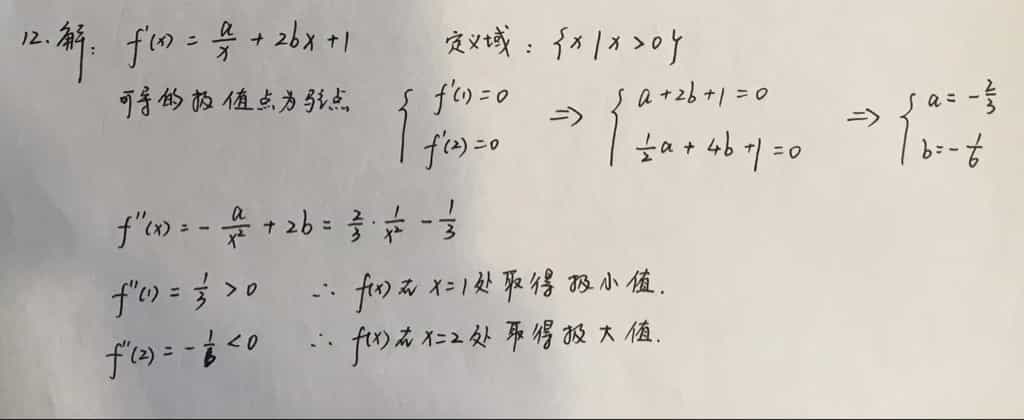 12.解: f'(x) = a/x + 2bx + 1 定义域: {x | x > 0}
可导的极值点为驻点 { f'(1) = 0 f'(2) = 0 ⇒ { a + 2b + 1 = 0 1/2 a + 4b + 1 = 0 ⇒ { a = -2/3 b = -1/6
f''(x) = - a/x² + 2b = 2/3 · 1/x² - 1/3
f''(1) = 1/3 > 0 ∴ f(x)在x=1处取得极小值.
f''(2) = -1/6 < 0 ∴ f(x)在x=2处取得极大值.